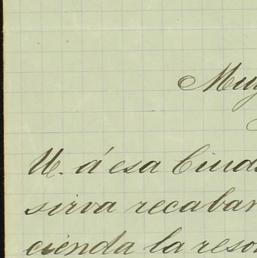 Muy
U. á esa Ciuda
sirva recabar
cienda la reso